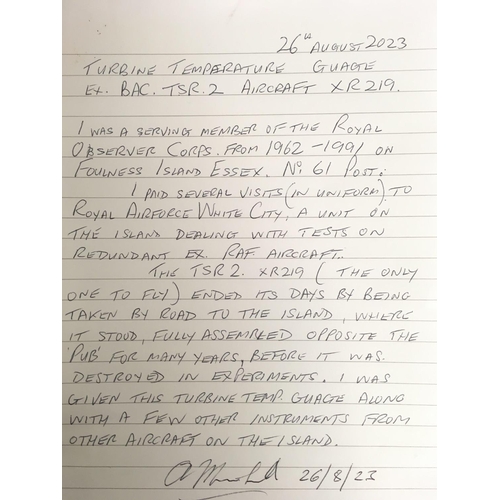 26th AUGUST 2023
TURBINE TEMPERATURE GUAGTE
EX. BAC. TSR.2 AIRCRAFT XR219.
I WAS A SERVING MEMBER OF THE ROYAL
OBSERVER CORPS. FROM 1962 - 1991 ON
FOULNESS ISLAND ESSEX. No 61 POST.
I PAID SEVERAL VISITS (IN UNIFORM) TO
ROYAL AIRFORCE WHITE CITY, A UNIT ON
THE ISLAND DEALING WITH TESTS ON
REDUNDANT EX. RAF AIRCRAFT.
THE TSR2. XR219 (THE ONLY
ONE TO FLY) ENDED ITS DAYS BY BEING
TAKEN BY ROAD TO THE ISLAND, WHERE
IT STOOD, FULLY ASSEMBLED OPPOSITE THE
'PUB' FOR MANY YEARS, BEFORE IT WAS
DESTROYED IN EXPERIMENTS. I WAS
GIVEN THIS TURBINE TEMP. GUAGTE ALONG
WITH A FEW OTHER INSTRUMENTS FROM
OTHER AIRCRAFT ON THE ISLAND.
26/8/23